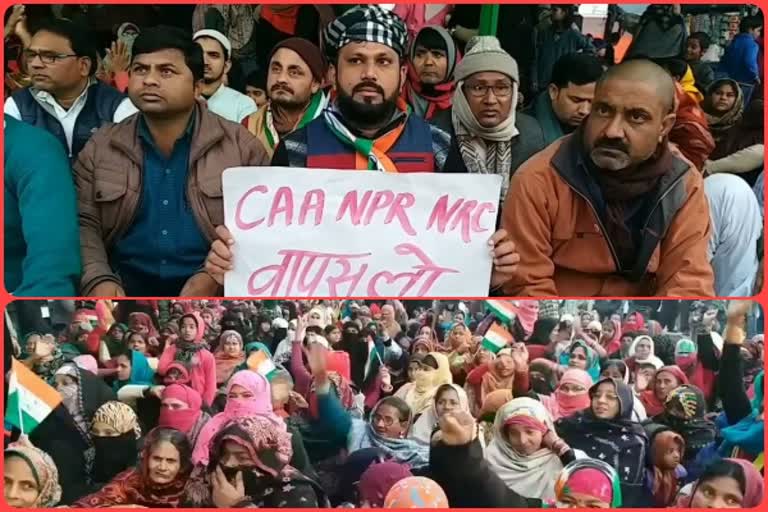 CAA NPR NRC
वापस लो